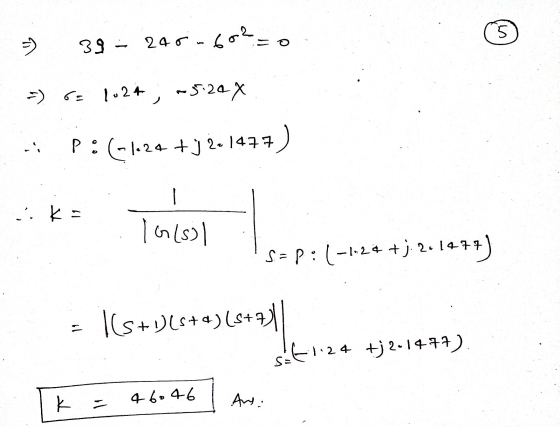 5
⇒ 39 - 24σ - 6σ² = 0
⇒ σ = 1.24, -5.24 X
∴ P : (-1.24 + j 2.1477)
∴ k = 1 / |G(s)| | s = P : (-1.24 + j 2.1477)
= |(s+1)(s+4)(s+7)| | s = (-1.24 + j 2.1477)
k = 46.46 Ans.